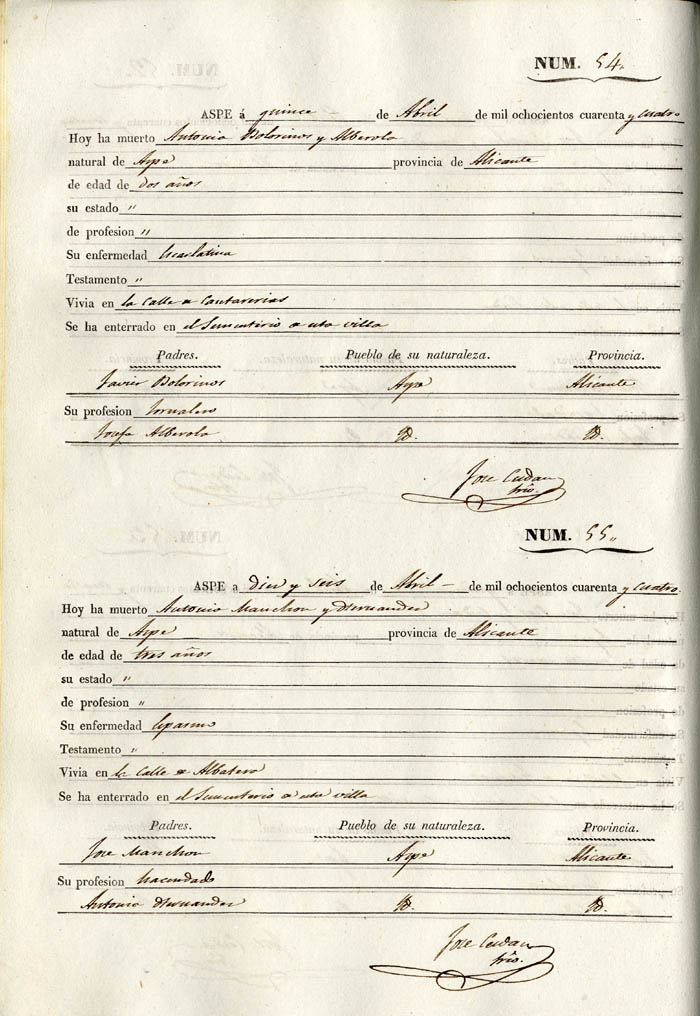 NUM. 54.
ASPE á quince de Abril de mil ochocientos cuarenta y cuatro
Hoy ha muerto Antonia Bolorinos y Alberola
natural de Aspe provincia de Alicante
de edad de dos años
su estado "
de profesion "
Su enfermedad Escarlatina
Testamento "
Vivia en la Calle de Cantarerias
Se ha enterrado en el Sementirio de esta villa
Padres. Pueblo de su naturaleza. Provincia.
Javier Bolorinos Aspe Alicante
Su profesion Jornalero
Josefa Alberola Id. Id.
Jose
NUM. 55"
ASPE a diez y seis de Abril de mil ochocientos cuarenta y cuatro.
Hoy ha muerto Antonio Manchon y Hernandez
natural de Aspe provincia de Alicante
de edad de tres años
su estado "
de profesion "
Su enfermedad Espasmo
Testamento "
Vivia en la Calle de Albatera
Se ha enterrado en el Sementerio de esta villa
Padres. Pueblo de su naturaleza. Provincia.
Jose Manchon Aspe Alicante
Su profesion hacendado
Antonia Hernandez Id. Id.
Jose